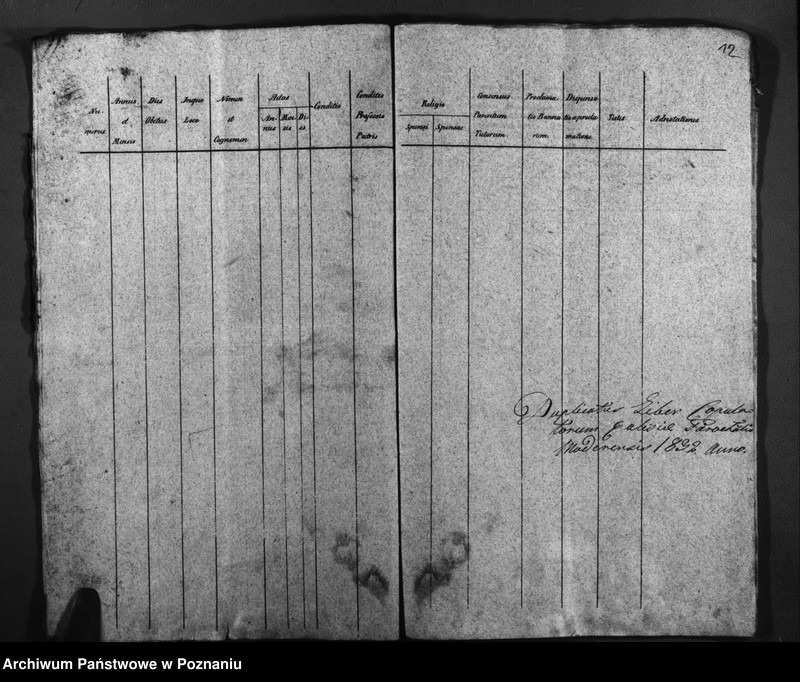 12
Nu-
merus
Annus
et
Mensis
Dies
Obitus
Inquo
Loco
Nomen
et
Cognomen
Aetas
An-
nus
Men-
sis
Di-
es
Conditio
Conditio
Professio
Patris
Religio
Sponsi
Sponsae
Consensus
Parentum
Tutorum
Proclama-
tio Banno-
rum
Dispensa-
tio a procla-
matione
Testes
Adnotationes
Duplicatus Liber Copula-
torum Parochiae
1832 Anno.
Archiwum Państwowe w Poznaniu